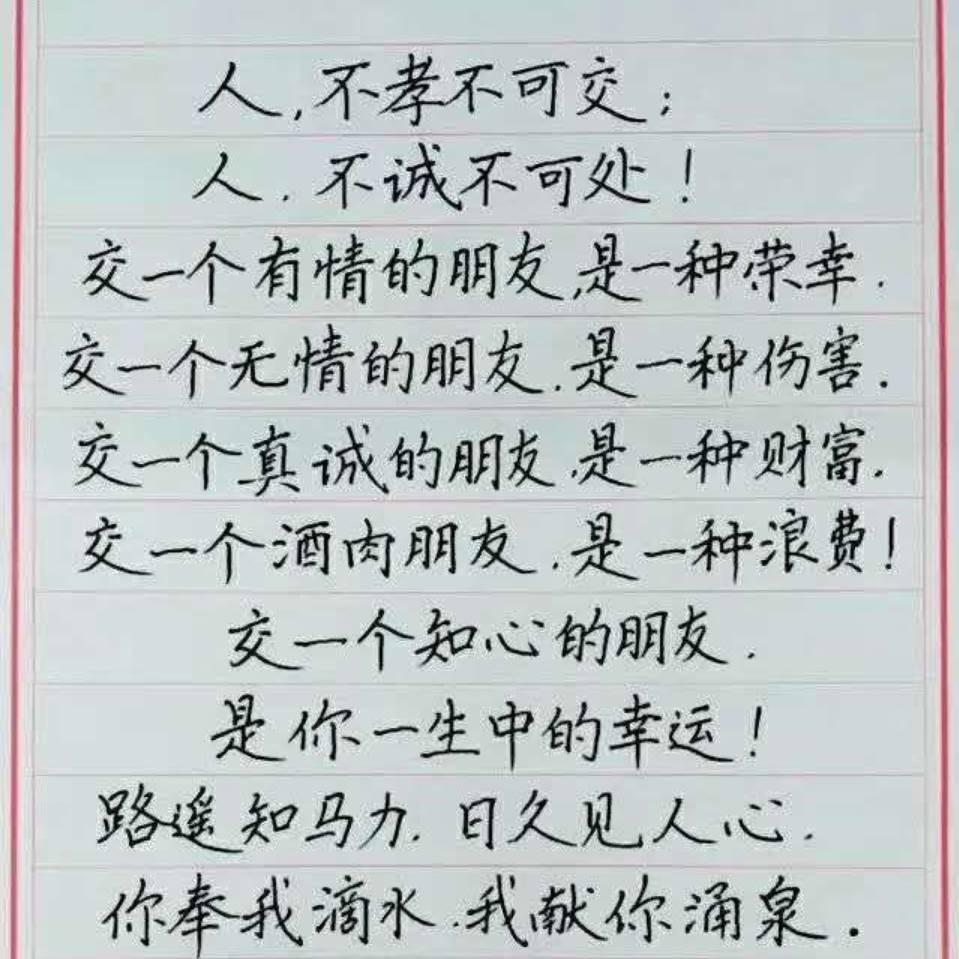 人,不孝不可交;
人.不诚不可处!
交一个有情的朋友,是一种荣幸.
交一个无情的朋友.是一种伤害.
交一个真诚的朋友.是一种财富.
交一个酒肉朋友.是一种浪费!
交一个知心的朋友.
是你一生中的幸运!
路遥知马力.日久见人心.
你奉我滴水.我献你涌泉.